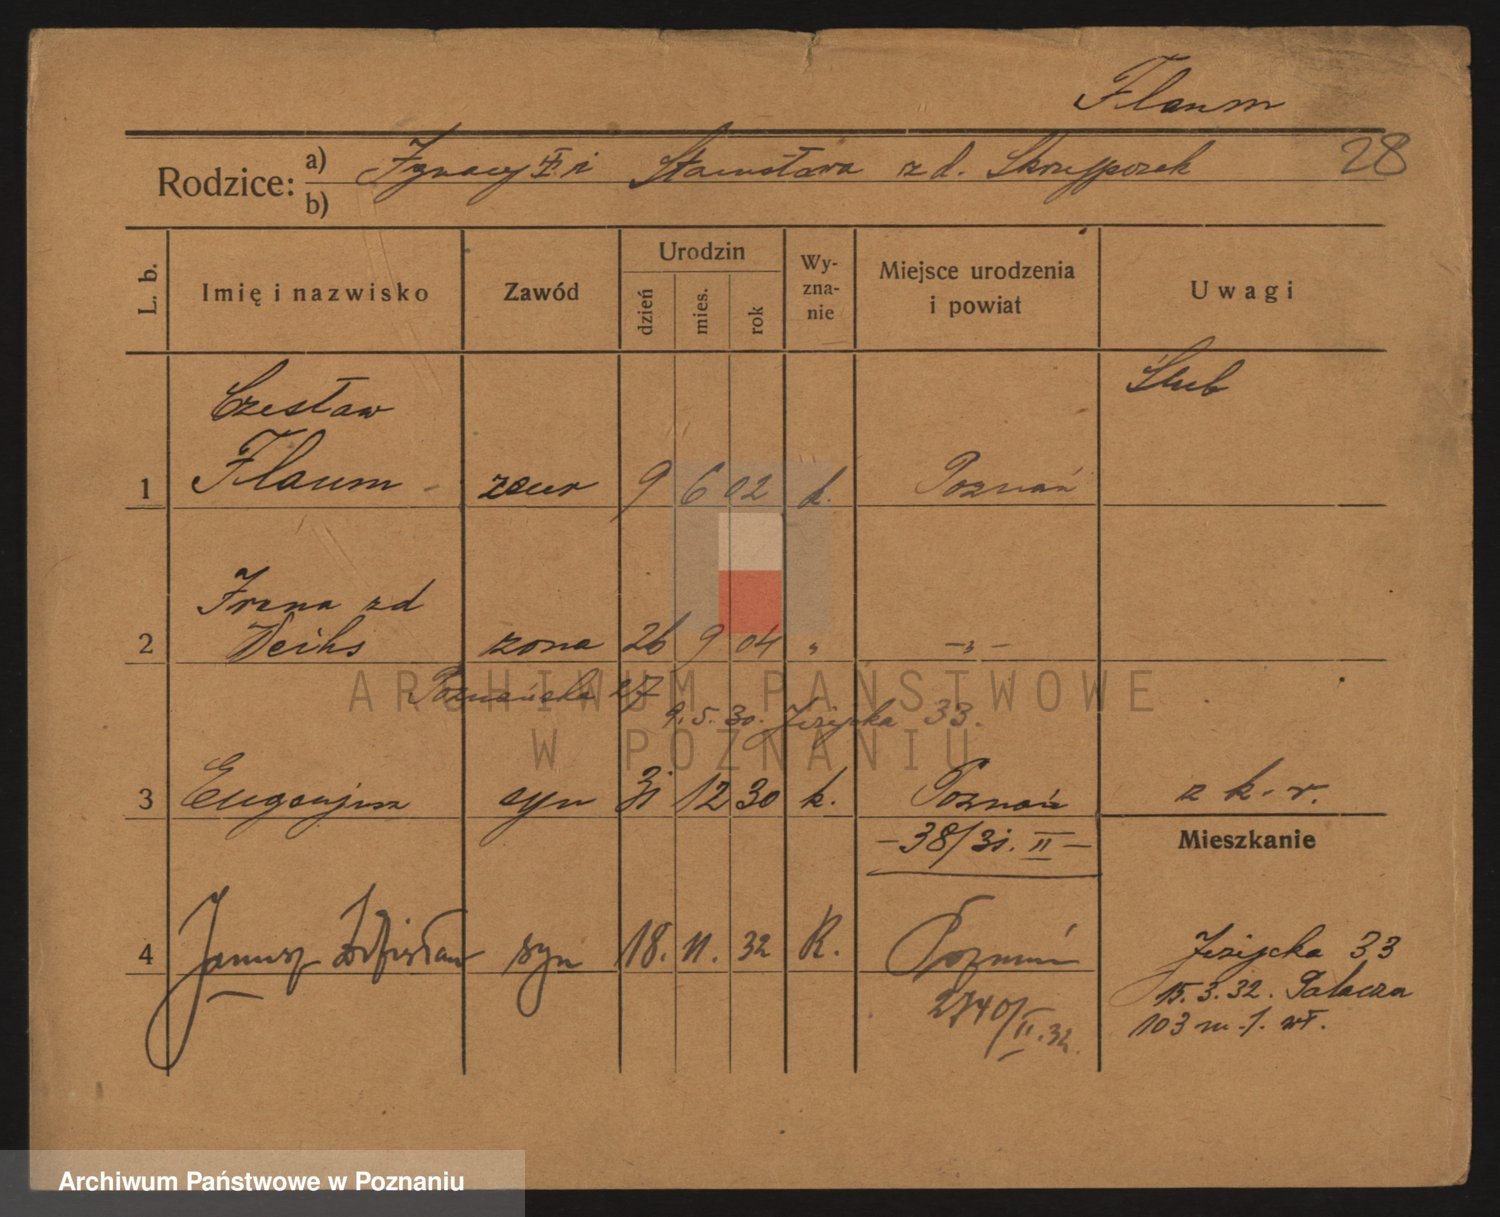 Flaum
28
Rodzice: a) Ignacy F. i Stanisława z d. Skrzypczak
b)
L. b. Imię i nazwisko Zawód Urodzin Wyznanie Miejsce urodzenia i powiat Uwagi
dzień mies. rok
Czesław Ślub
1 Flaum 9 6 02 k. Poznań
Irena zd
2 Weihs zona 26 9 04 „ —„—
Poznańska 27
9.5.30. 33.
3 Eugenjusz syn 31 12 30 k. Poznań z k. r.
—38/31. II— Mieszkanie
4 Janusz Zdzisław syn 18. 11. 32 R. Poznań
33
2740/II.32.
15.3.32. Palacza
103 m. 1. wł.
ARCHIWUM PAŃSTWOWE
W POZNANIU
Archiwum Państwowe w Poznaniu